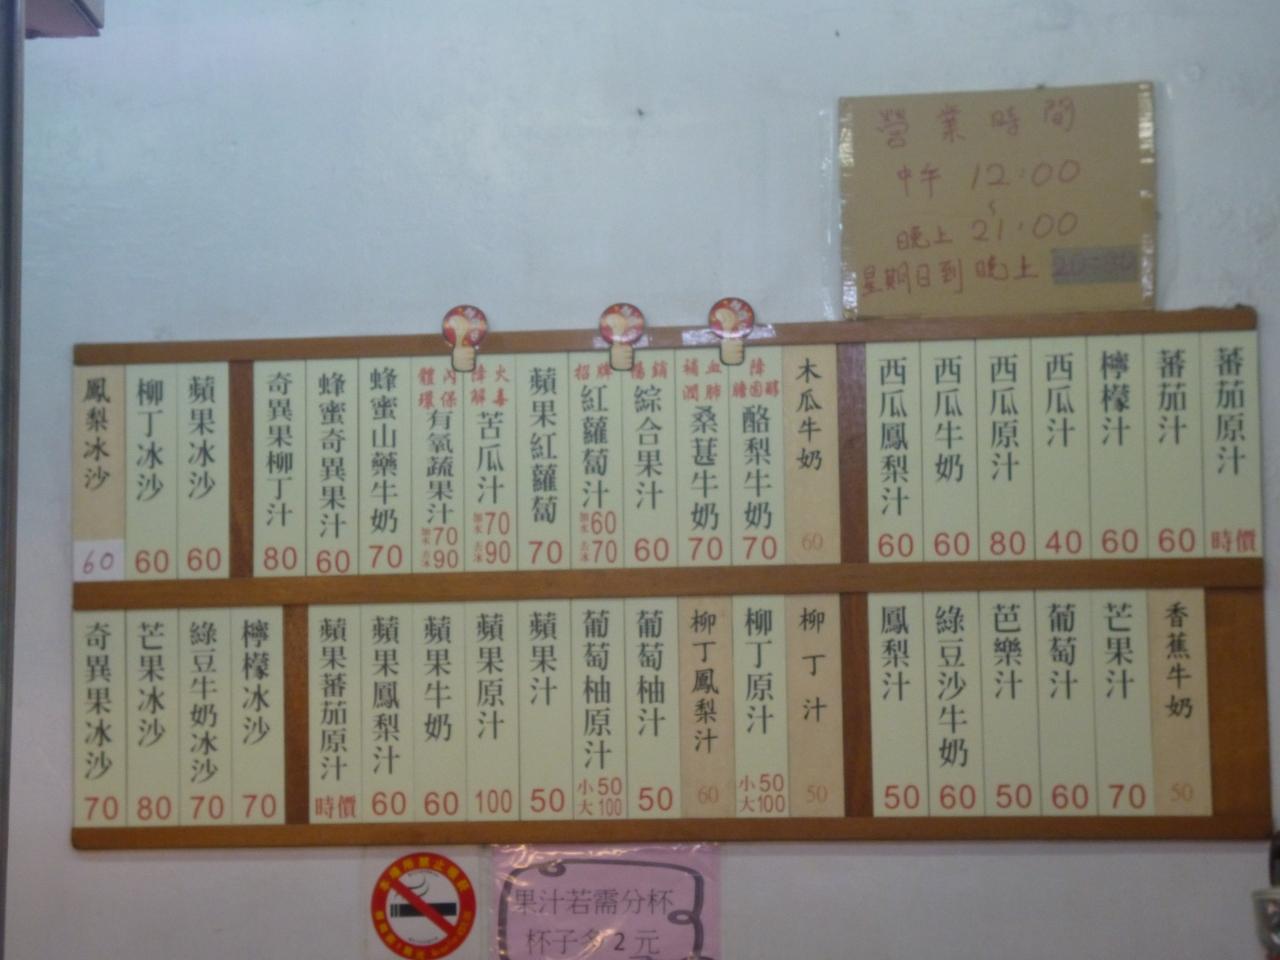 營業時間
中午 12:00
~
晚上 21:00
星期日到晚上
鳳梨冰沙 60
柳丁冰沙 60
蘋果冰沙 60
奇異果柳丁汁 80
蜂蜜奇異果汁 60
蜂蜜山藥牛奶 70
體內環保 有氧蔬果汁 加水70 去冰90
降火解毒 苦瓜汁 加水70 去冰90
蘋果紅蘿蔔 70
招牌 紅蘿蔔汁 加水60 去冰70
暢銷 綜合果汁 60
補血潤肺 桑葚牛奶 70
降膽固醇 酪梨牛奶 70
木瓜牛奶 60
西瓜鳳梨汁 60
西瓜牛奶 60
西瓜原汁 80
西瓜汁 40
檸檬汁 60
蕃茄汁 60
蕃茄原汁 時價
奇異果冰沙 70
芒果冰沙 80
綠豆牛奶冰沙 70
檸檬冰沙 70
蘋果蕃茄原汁 時價
蘋果鳳梨汁 60
蘋果牛奶 60
蘋果原汁 100
蘋果汁 50
葡萄柚原汁 小50 大100
葡萄柚汁 50
柳丁鳳梨汁 60
柳丁原汁 小50 大100
柳丁汁 50
鳳梨汁 50
綠豆沙牛奶 60
芭樂汁 50
葡萄汁 60
芒果汁 70
香蕉牛奶 50
果汁若需分杯
杯子多2元